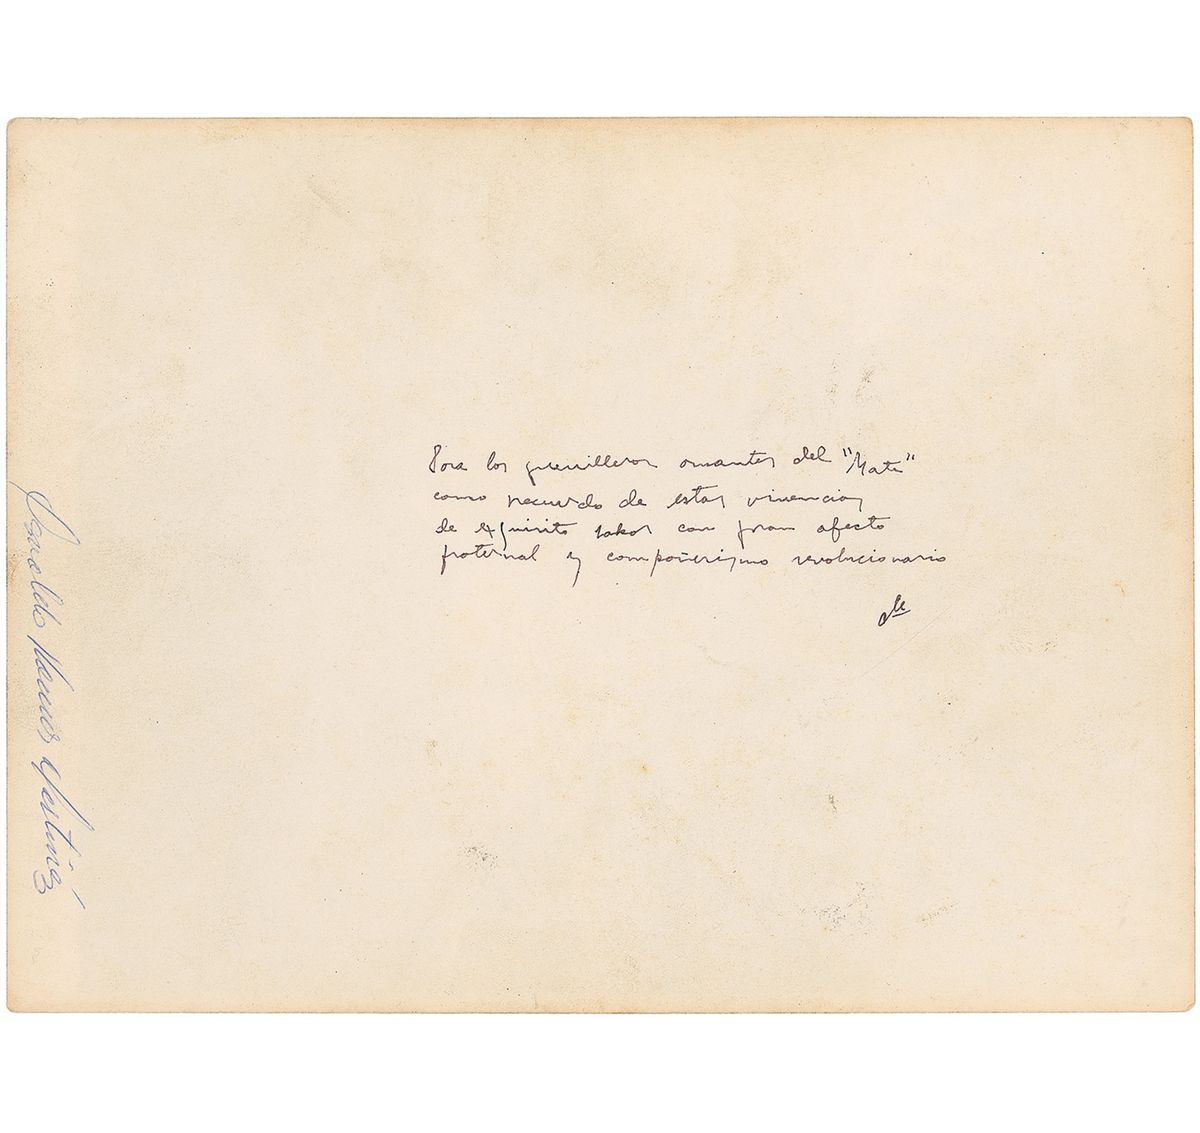 Para los guerrilleros amantes del "Mate"
como recuerdo de estas vivencias
de exquisito sabor con gran afecto
fraternal y compañerismo revolucionario